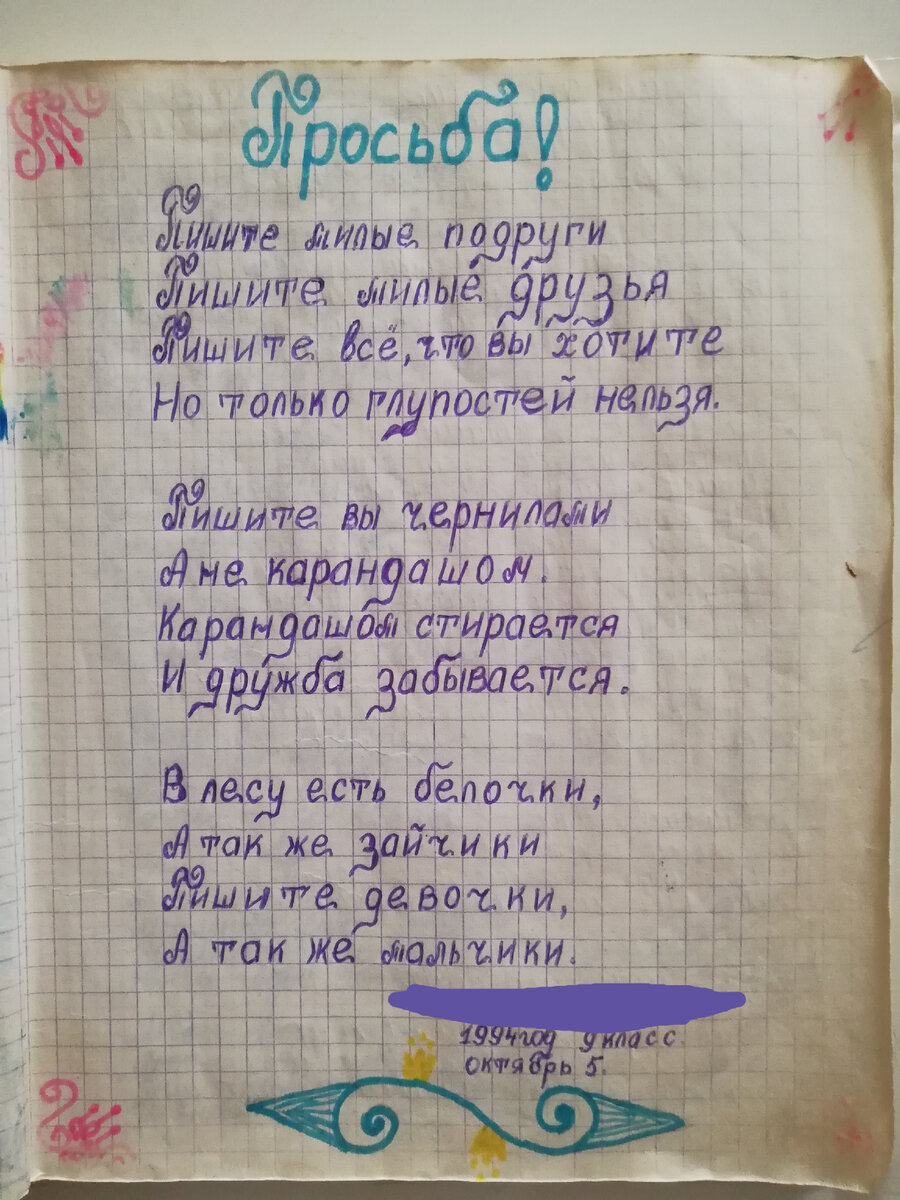 Просьба!
Пишите милые подруги
Пишите милые друзья
Пишите всё, что вы хотите
Но только глупостей нельзя.
Пишите вы чернилами
А не карандашом.
Карандашом стирается
И дружба забывается.
В лесу есть белочки,
А так же зайчики
Пишите девочки,
А так же мальчики.
1994 год 9 класс.
октябрь 5.